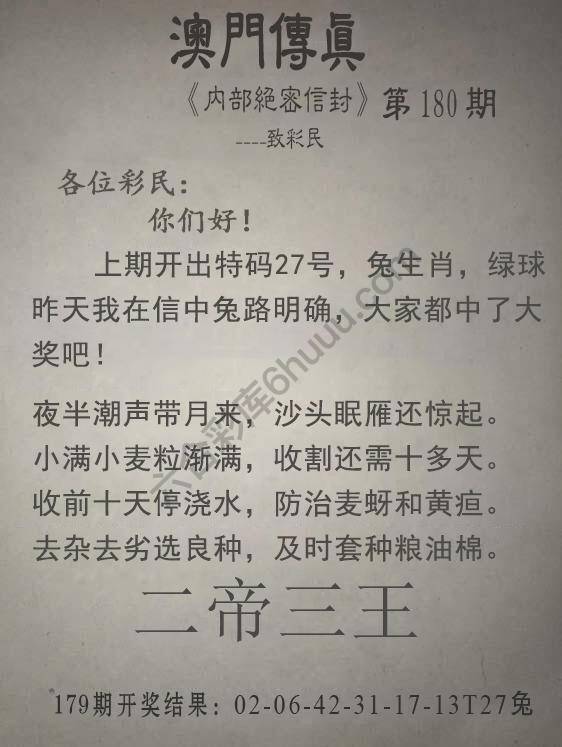 澳門傳眞
《内部絕密信封》第180期
----致彩民
各位彩民：
你们好！
上期开出特码27号，兔生肖，绿球
昨天我在信中兔路明确，大家都中了大
奖吧！
夜半潮声带月来，沙头眠雁还惊起。
小满小麦粒渐满，收割还需十多天。
收前十天停浇水，防治麦蚜和黄疸。
去杂去劣选良种，及时套种粮油棉。
二帝三王
179期开奖结果：02-06-42-31-17-13T27兔
六合彩库6huuu.com